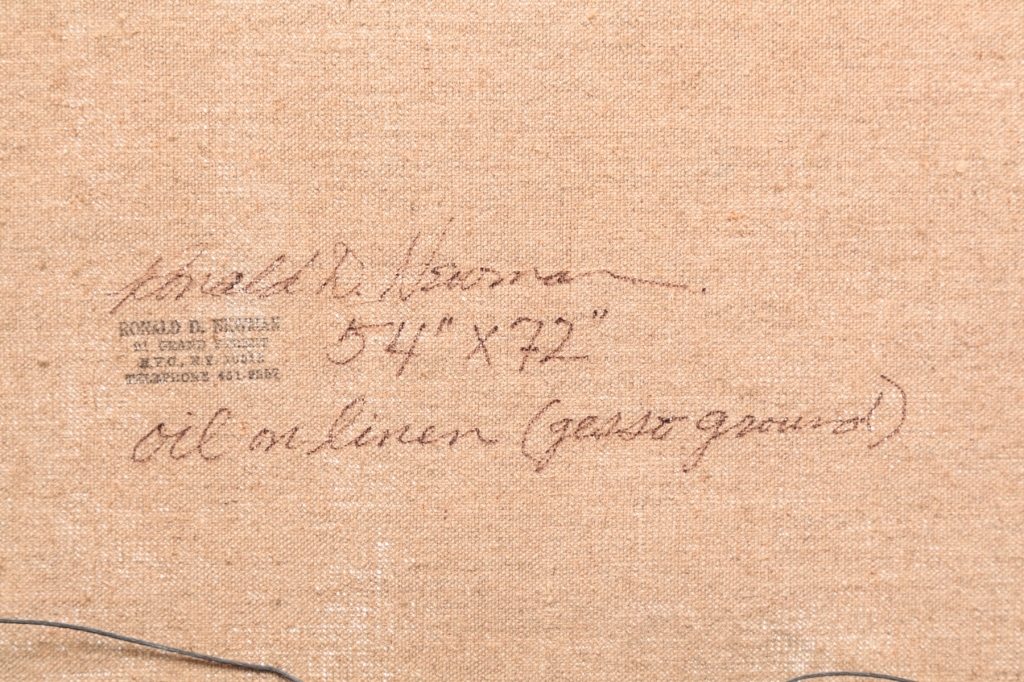 Ronald D. Newman
RONALD D. NEWMAN
GRAND STREET
N.Y.C. N.Y.
TELEPHONE
54" X 72"
oil on linen (gesso ground)